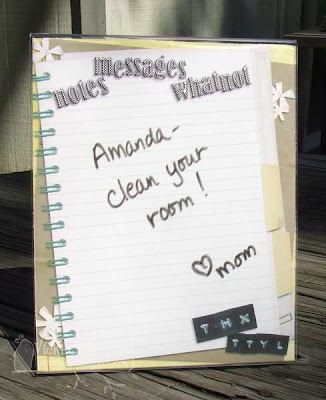 messages
notes whatnot
Amanda-
clean your
room!
♡mom
THX
TTYL